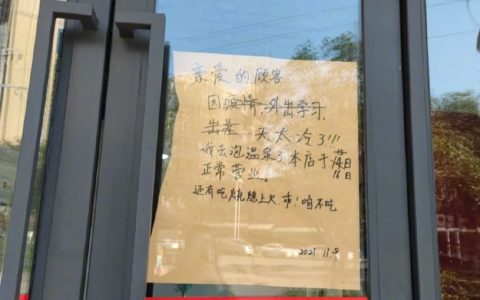 亲爱的顾客
因疫情,外出学习,
出差...天太冷了!!!
我去泡温泉了本店于14日
16日
正常营业!
还有吃烧烤上火 市!咱不吃
2021 11.9